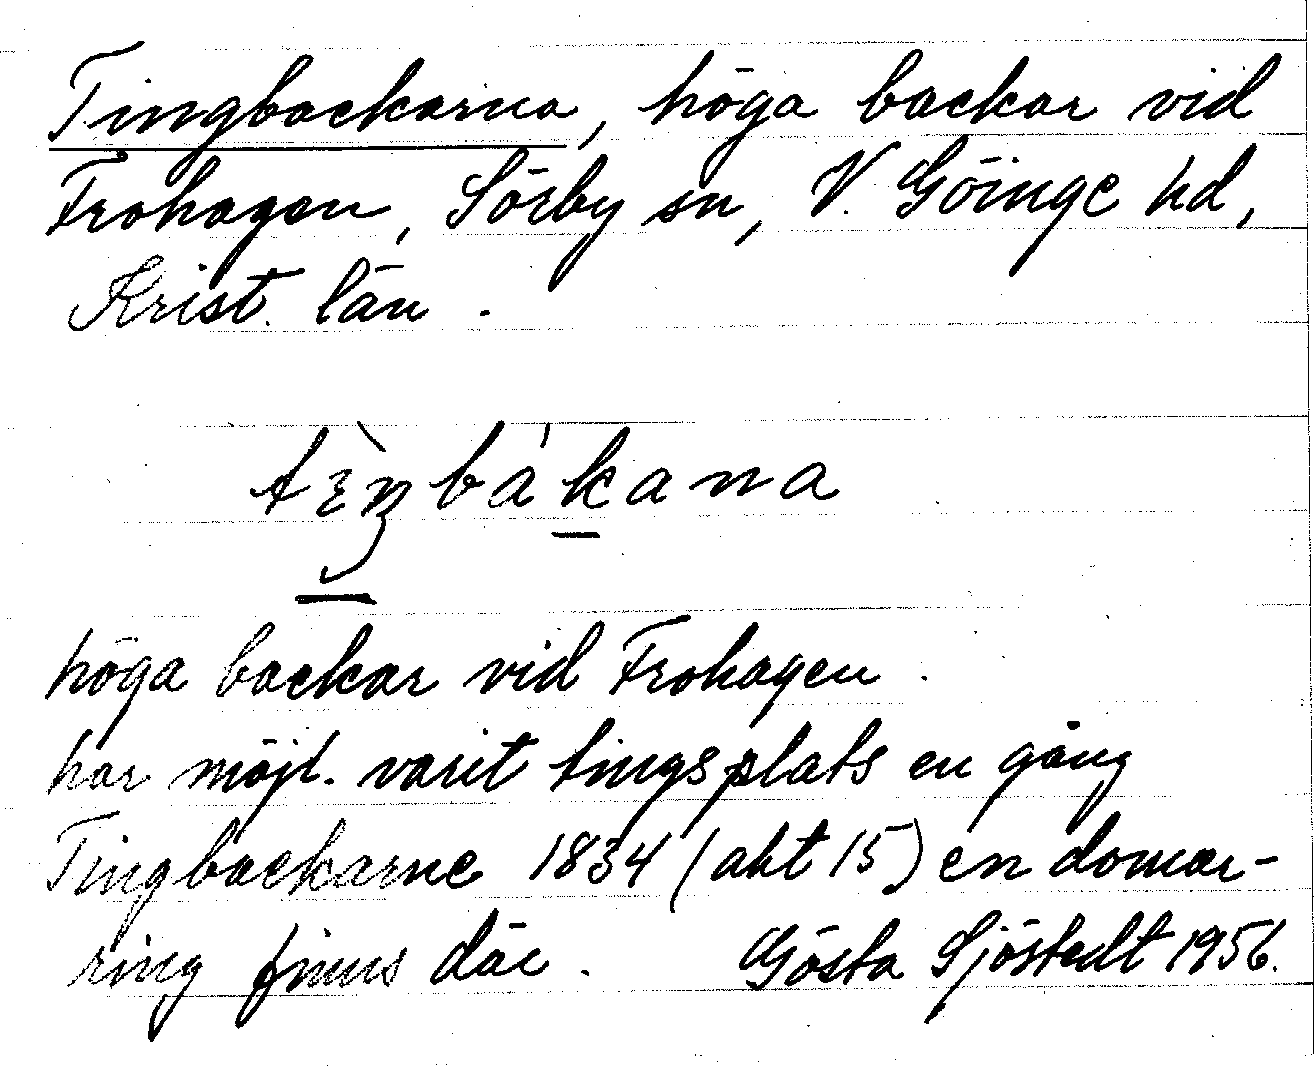 Tingbackarna, höga backar vid
Frohagen, Sörby sn, V. Göinge hd,
Krist. län.
tɛ̀ŋbákana
höga backar vid Frohagen.
har möjl. varit tingsplats en gång
Tingbackarne 1834 (akt 15) en domar-
ring finns där. Gösta Sjöstedt 1956.